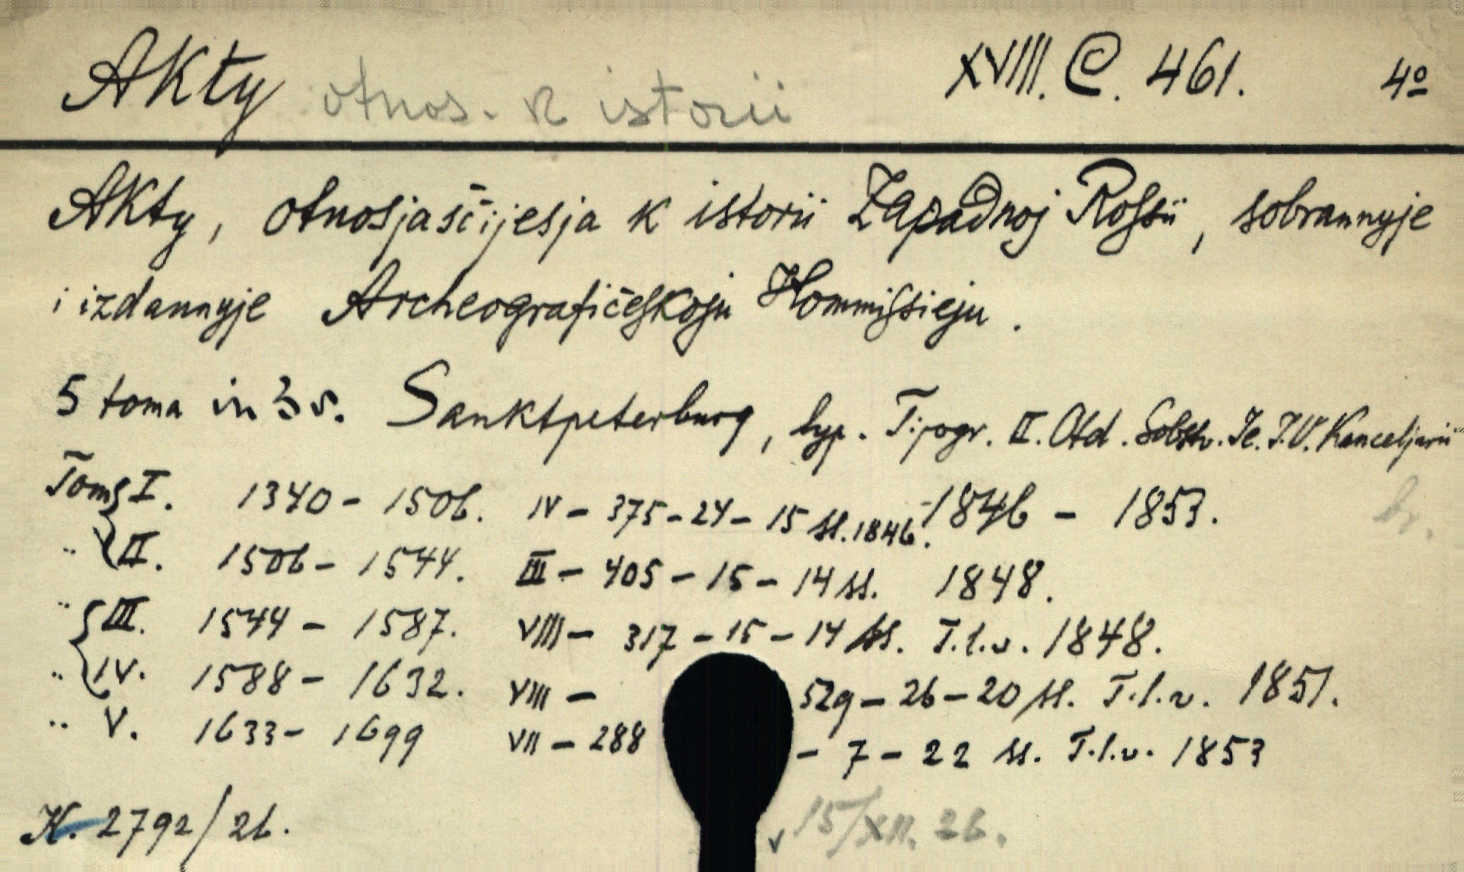 Akty otnos. k istorii XVIII. C. 461. 4º
Akty, otnosjaščijesja k istorii Zapadnoj Rossii, sobrannyje
i izdannyje Archeografičeskoju Kommissieju.
5 toma in 3 v. Sanktpeterburg, typ. Tipogr. II. Otd. Sobstv. Je. I. V. Kanceljarii
Toms I. 1340 - 1506. IV - 375 - 24 - 15 ss. 1846. 1846 - 1853. br.
„ II. 1506 - 1544. III - 405 - 15 - 14 ss. 1848.
„ III. 1544 - 1587. VIII - 317 - 15 - 14 ss. T.l.v. 1848.
„ IV. 1588 - 1632. VIII - 529 - 26 - 20 ss. T.l.v. 1851.
„ V. 1633 - 1699 VII - 288 - 7 - 22 ss. T.l.v. 1853
K. 2792/26. 15/XII. 26.